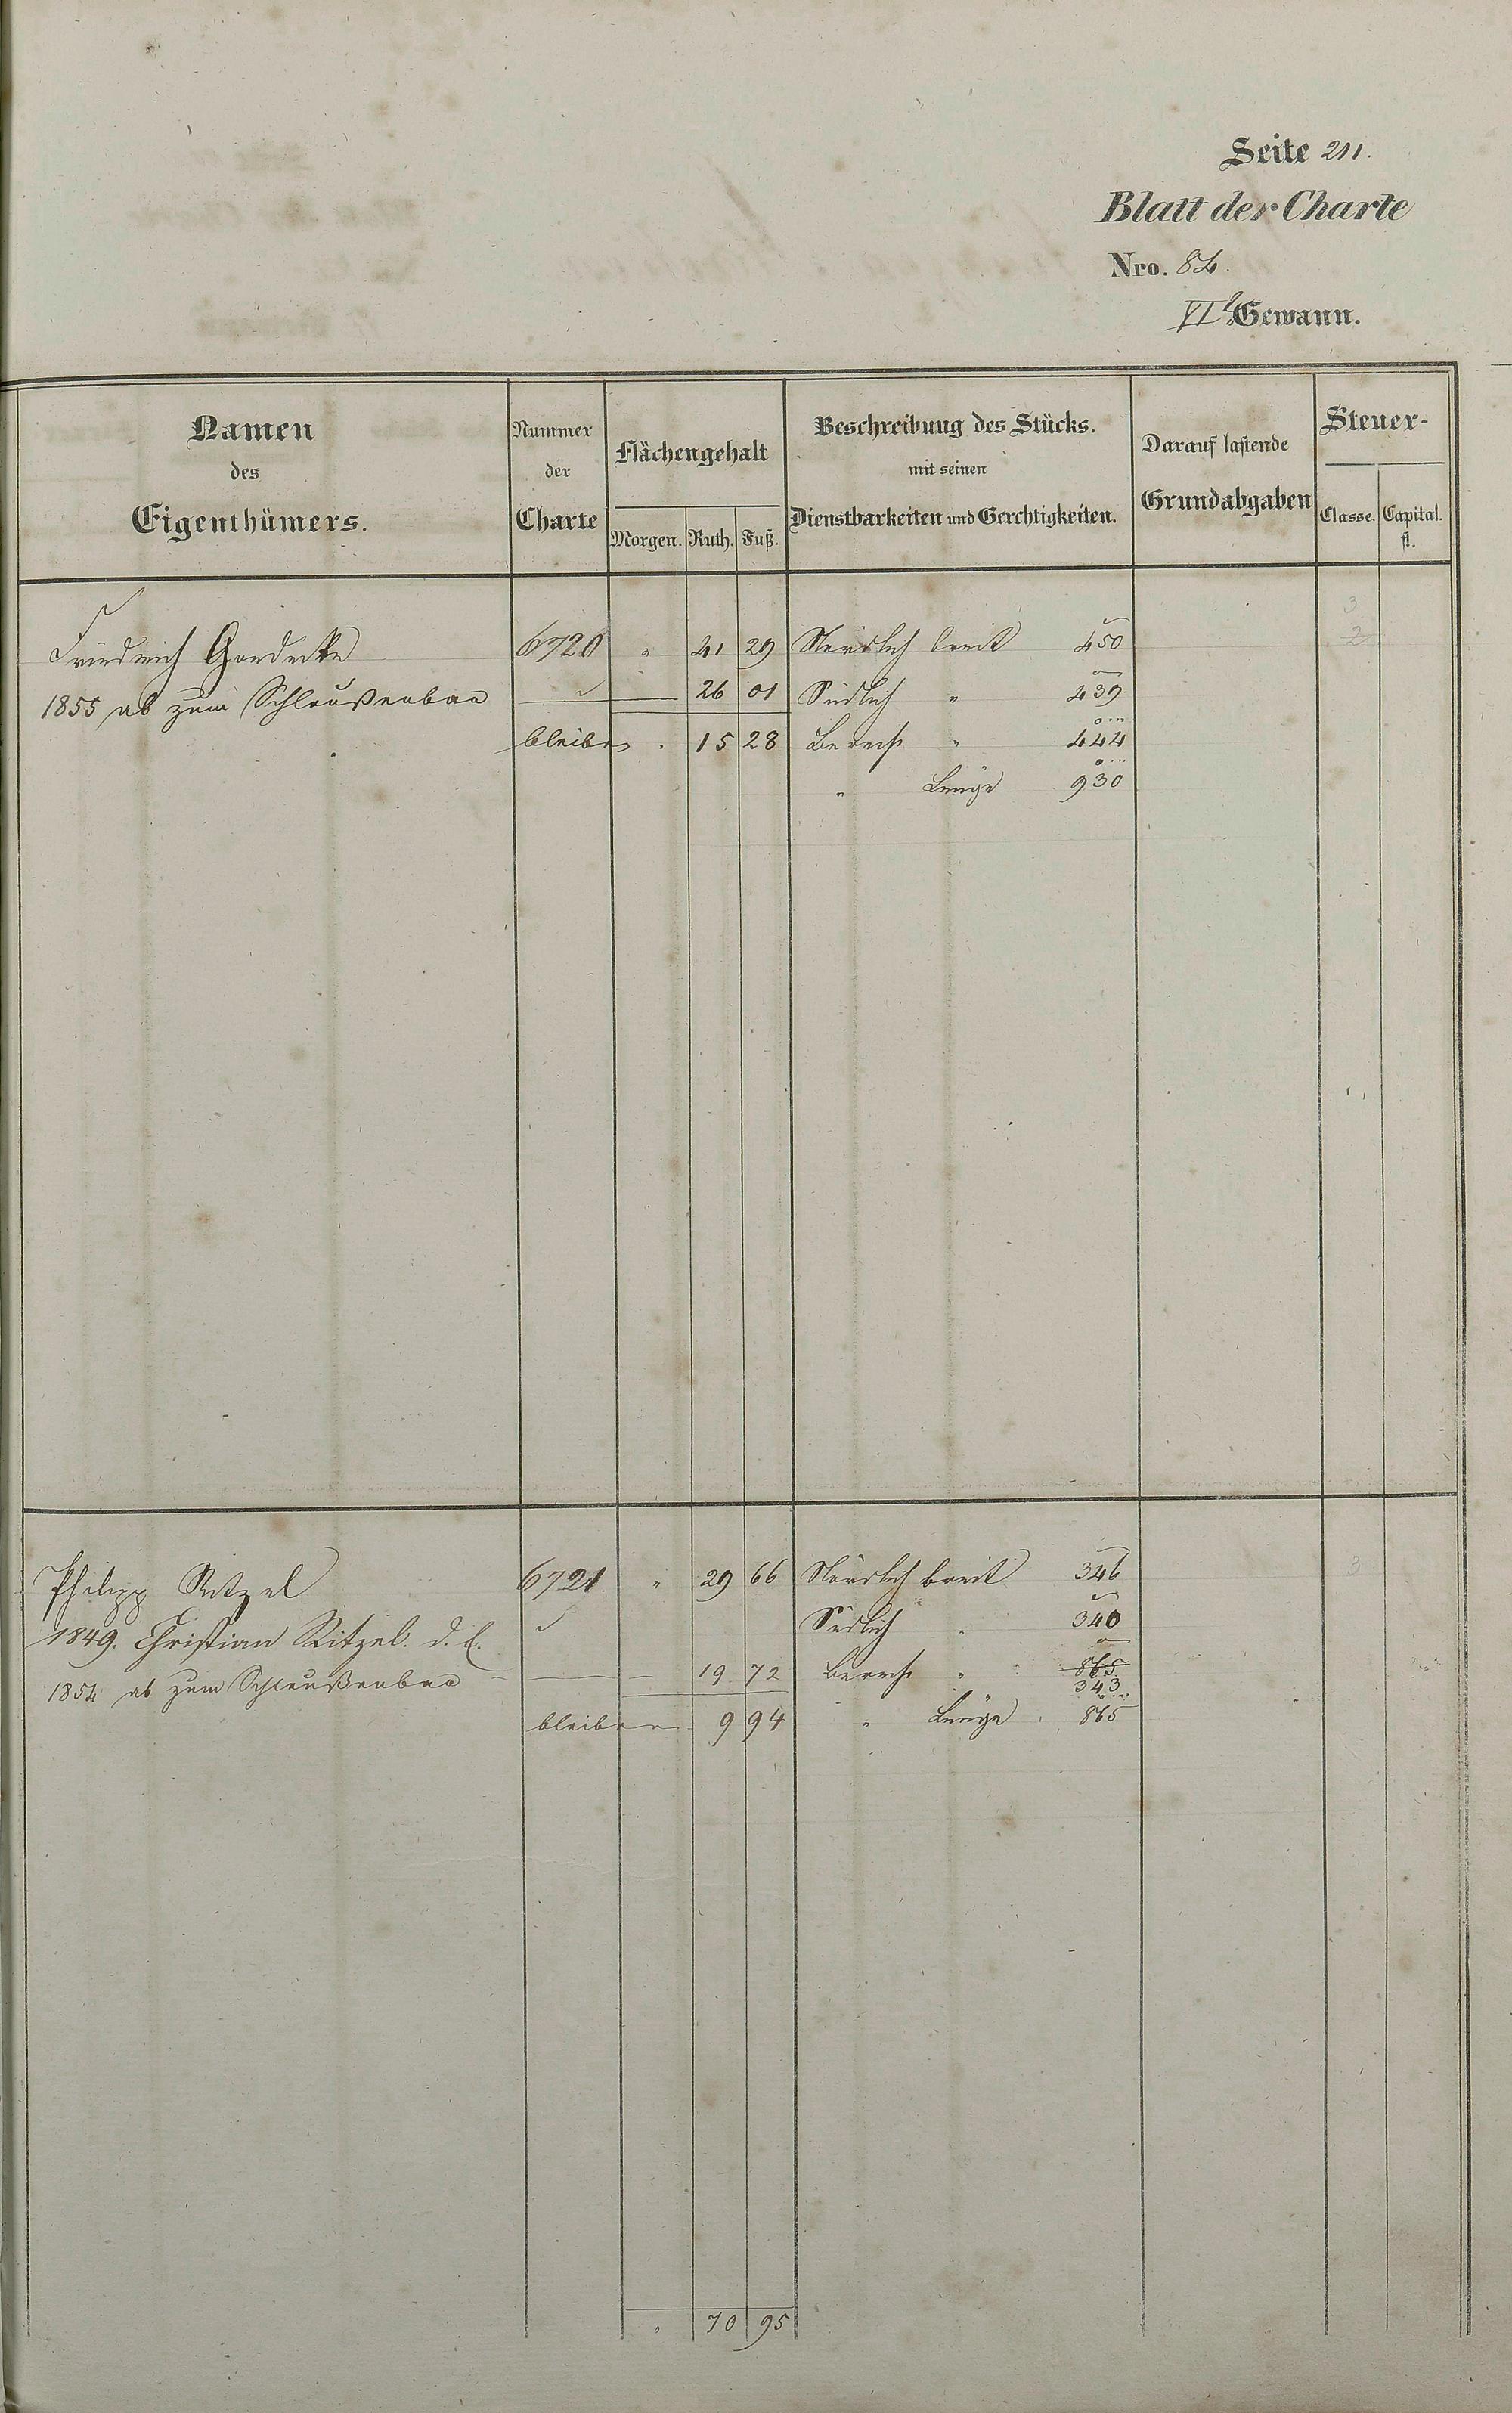 Seite 211.
Blatt der Charte
Nro. 84.
VIte Gewann.
Namen des Eigenthümers.
Nummer der Charte
Flächengehalt
Morgen. Ruth. Fuß.
Beschreibung des Stücks.
mit seinen
Dienstbarkeiten und Gerechtigkeiten.
Darauf lastende
Grundabgaben
Steuer-
Classe. Capital.
fl.
3
Friedrich Goedecke 6720 " 41 29 Nördlich breit 450 2
1855 ab zum Schleußenbau 26 01 Südlich " 439
bleiben . 15 28 Berech " 444
" Länge 930
Philipp Ritzel 6721. " 29 66 Nördlich breit 346 3
1849. Christian Ritzel. d. l. Südlich " 340
1854 ab zum Schleußenbau 19 72 Berech " 865
343
bleiben 9 94 " Länge 865
" 70 95